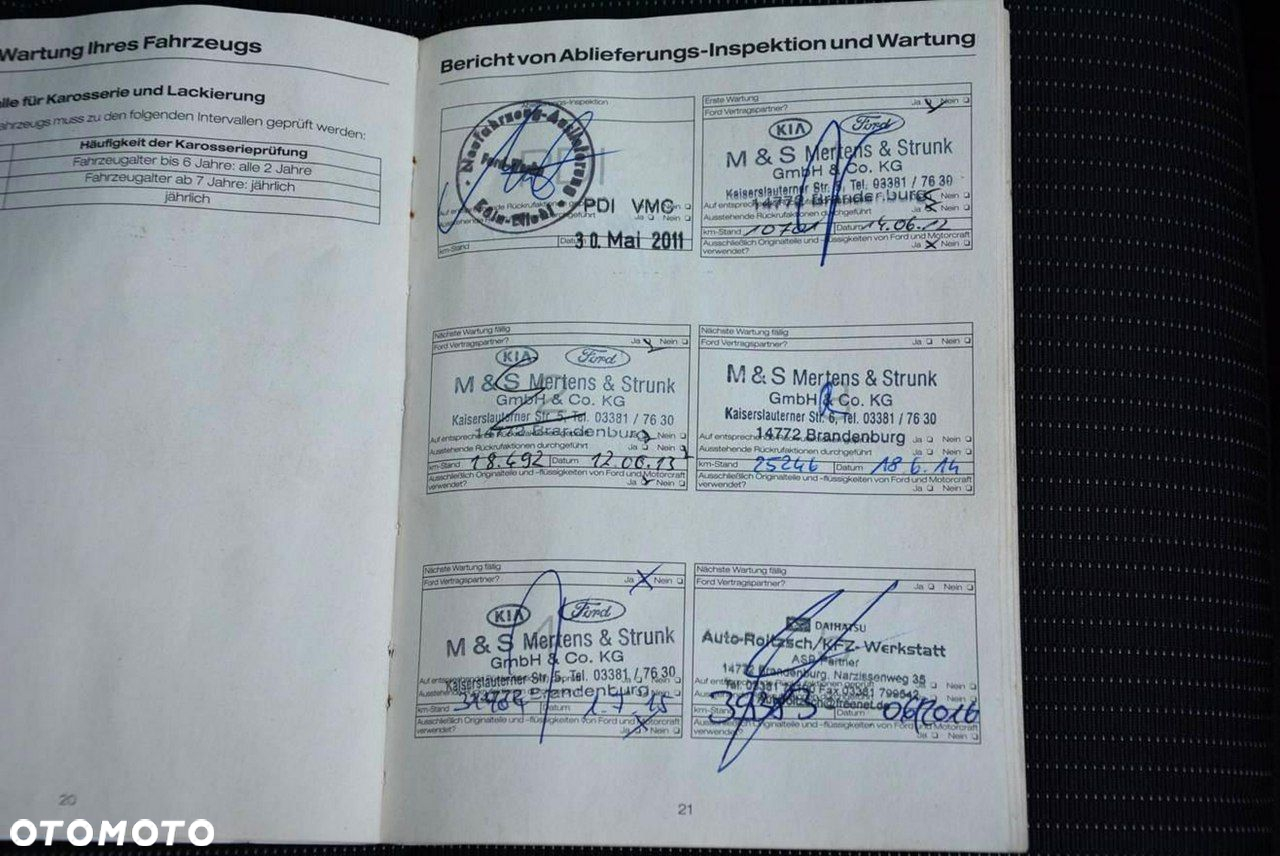 Wartung Ihres Fahrzeugs
lle für Karosserie und Lackierung
ahrzeugs muss zu den folgenden Intervallen geprüft werden:
Häufigkeit der Karosserieprüfung
Fahrzeugalter bis 6 Jahre: alle 2 Jahre
Fahrzeugalter ab 7 Jahre: jährlich
jährlich
20
Bericht von Ablieferungs-Inspektion und Wartung
-Inspektion
Neufahrzeug-Auslieferung
PDI VMC
Nein
Ja Nein
km-Stand
30. Mai 2011
Erste Wartung
Ja Nein
Ford Vertragspartner?
KIA Ford
M & S Mertens & Strunk
GmbH & Co. KG
Kaiserslauterner Str. 5, Tel. 03381 / 76 30
14772 Brandenburg
Ausstehende Rückrufaktionen durchgeführt Ja Nein
km-Stand 10701 Datum 14.06.12
Ausschließlich Originalteile und -flüssigkeiten von Ford und Motorcraft
verwendet? Ja Nein
Nächste Wartung fällig
Ford Vertragspartner? Ja Nein
KIA Ford
M & S Mertens & Strunk
GmbH & Co. KG
Kaiserslauterner Str. 5, Tel. 03381 / 76 30
14772 Brandenburg
Ausstehende Rückrufaktionen durchgeführt Ja Nein
km-Stand 18.492 Datum 12.06.13
Ausschließlich Originalteile und -flüssigkeiten von Ford und Motorcraft
verwendet? Ja Nein
Nächste Wartung fällig
Ford Vertragspartner? Ja Nein
M & S Mertens & Strunk
GmbH & Co. KG
Kaiserslauterner Str. 6, Tel. 03381 / 76 30
14772 Brandenburg
Ja Nein
Ausstehende Rückrufaktionen durchgeführt Ja Nein
km-Stand 25246 Datum 18.6.14
Ausschließlich Originalteile und -flüssigkeiten von Ford und Motorcraft
verwendet? Ja Nein
Nächste Wartung fällig
Ford Vertragspartner? Ja Nein
KIA Ford
M & S Mertens & Strunk
GmbH & Co. KG
Kaiserslauterner Str. 5, Tel. 03381 / 76 30
14772 Brandenburg
km-Stand Datum 1.7.15
Ausschließlich Originalteile und -flüssigkeiten von Ford und Motorcraft
verwendet? Ja Nein
Nächste Wartung fällig
Ford Vertragspartner? Ja Nein
DAIHATSU
Auto-Roitzsch/KFZ-Werkstatt
ASP Partner
14772 Brandenburg, Narzissenweg 35
Fax 03381
Ja Nein
km-Stand 39383 Datum
Ausschließlich Originalteile und -flüssigkeiten von Ford und Motorcraft
verwendet? Ja Nein
21
OTOMOTO